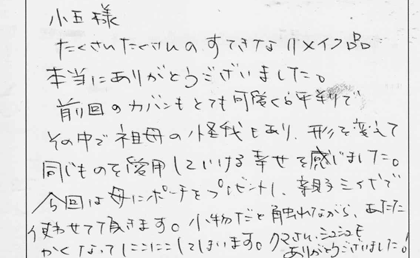 小玉様
たくさんたくさんのすてきなリメイク品
本当にありがとうございました。
前回のカバンもとても可愛くて便利で
その中で祖母の怪我もあり、形を変えて
同じものを愛用していける幸せを感じました。
今回は母にポーチをプレゼントし、親子ミイズで
使わせて頂きます。小物だと触れながら、あたた
かくなってにこにこしてしまいます。クマさん、シュシュも
ありがとうございました!